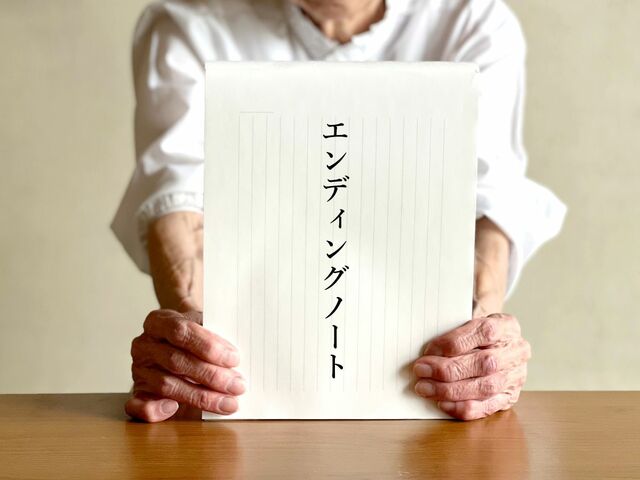 エンディングノート